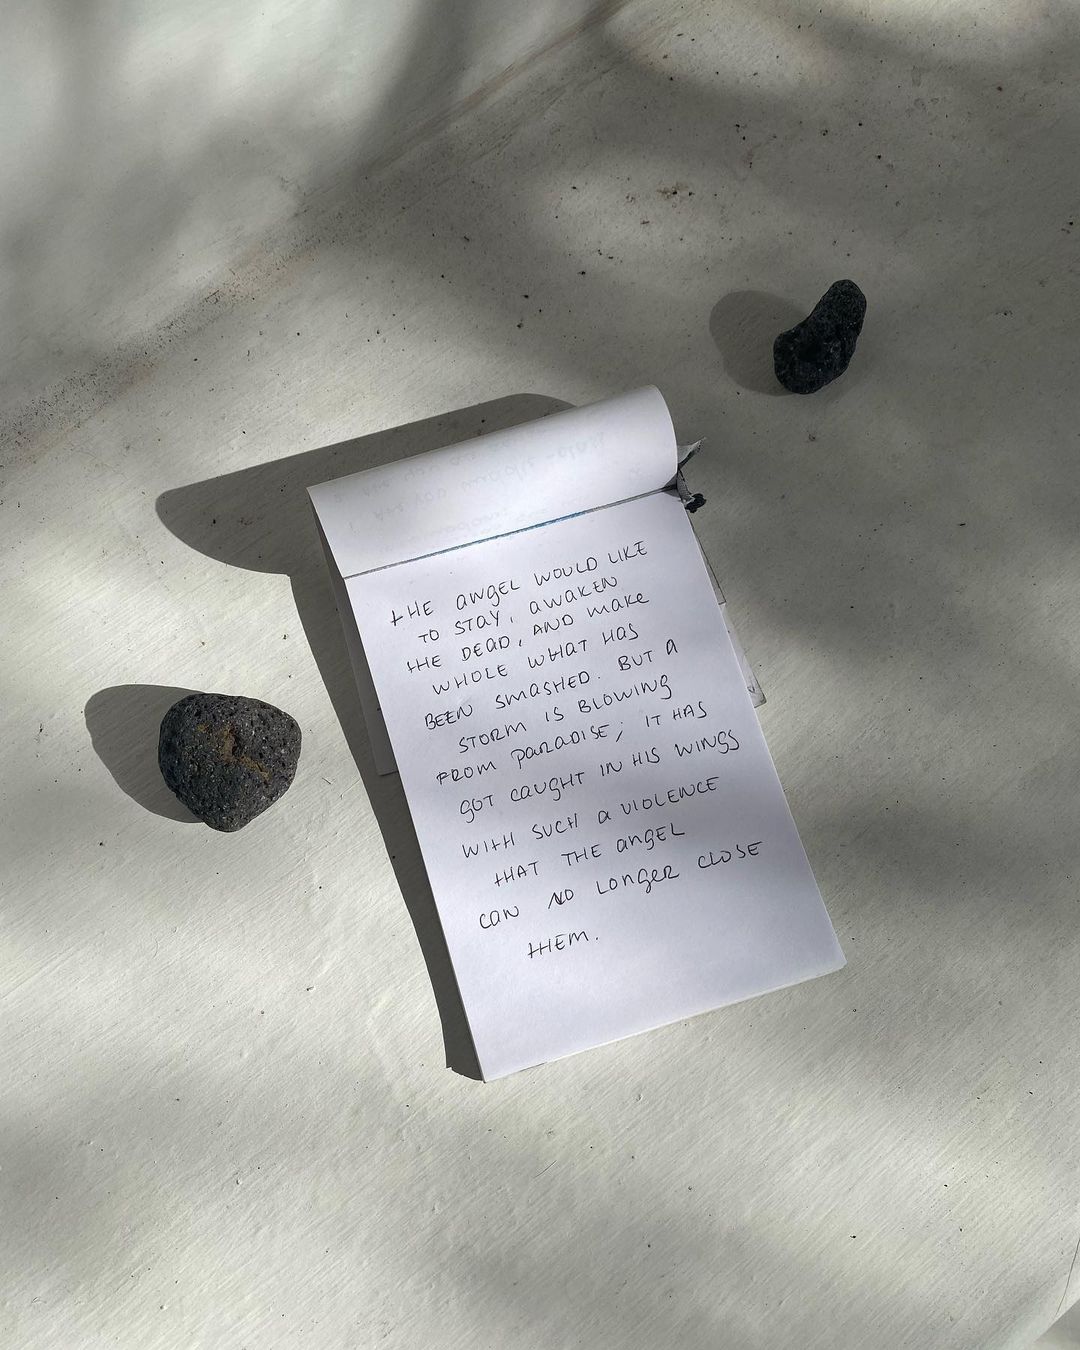 THE ANGEL WOULD LIKE
TO STAY, AWAKEN
THE DEAD, AND MAKE
WHOLE WHAT HAS
BEEN SMASHED. BUT A
STORM IS BLOWING
FROM PARADISE; IT HAS
GOT CAUGHT IN HIS WINGS
WITH SUCH A VIOLENCE
THAT THE ANGEL
CAN NO LONGER CLOSE
THEM.